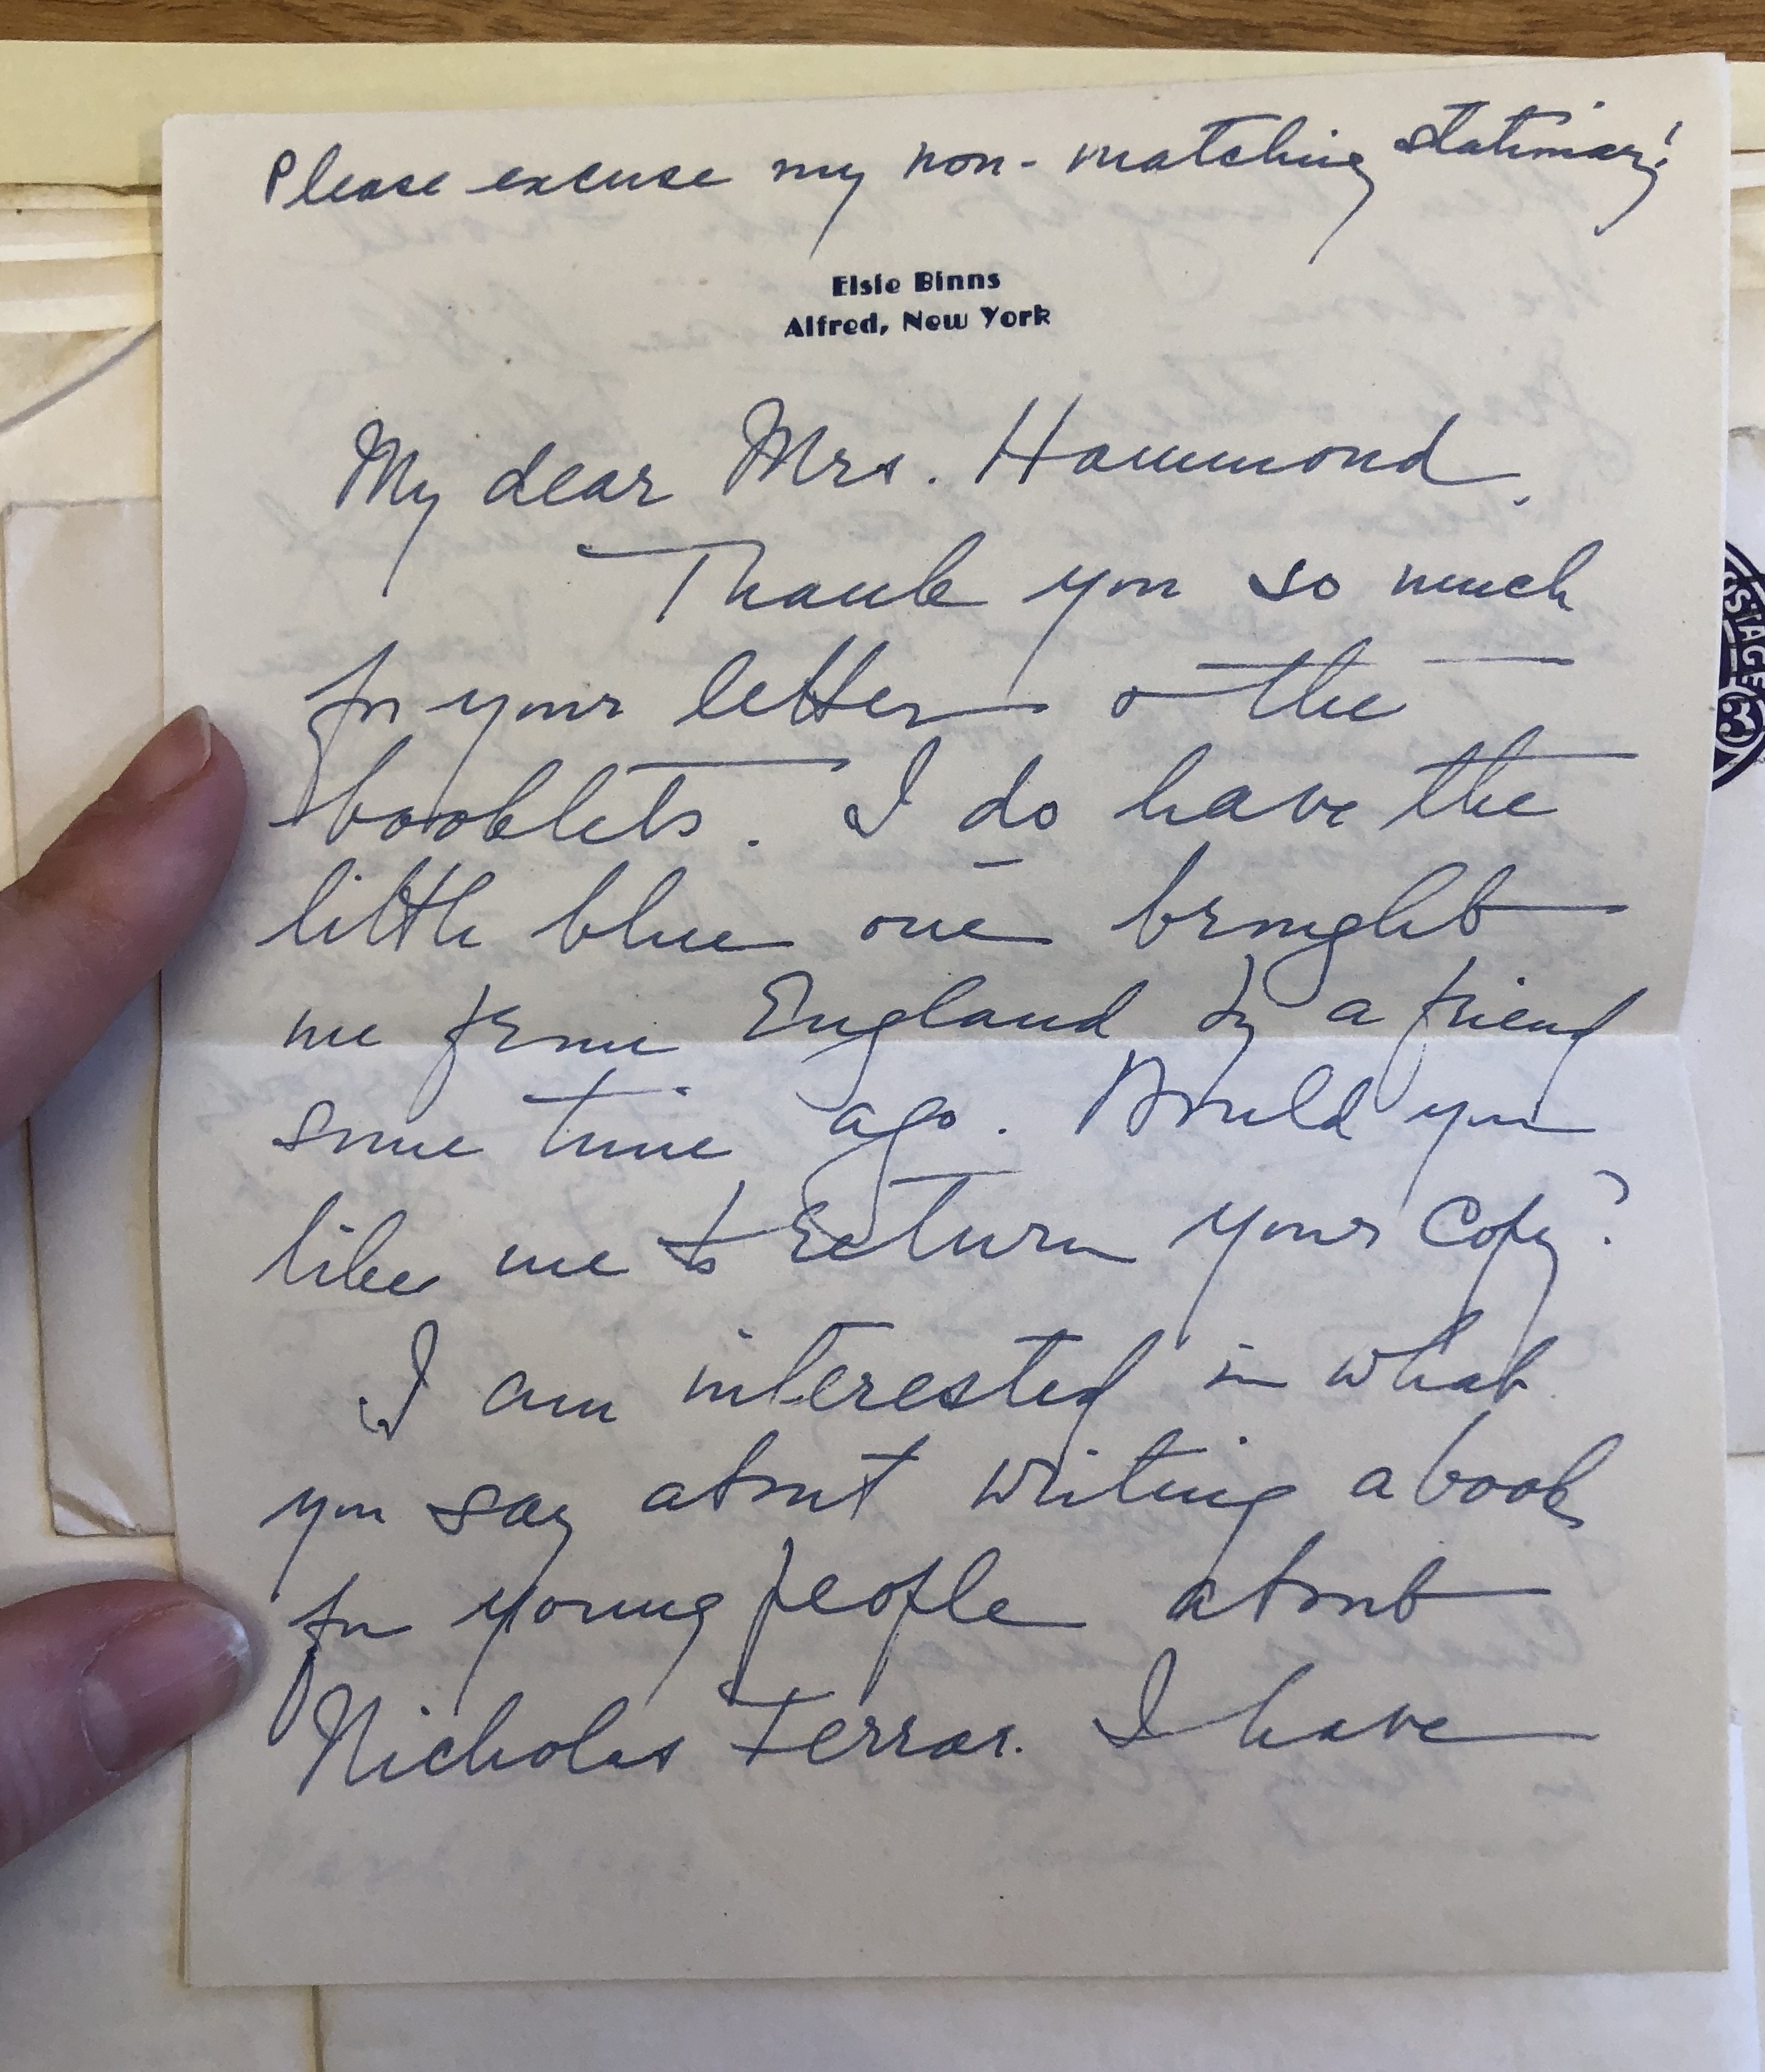 Please excuse my non-matching stationary!
Elsie Binns
Alfred, New York
My dear Mrs. Hammond,
Thank you so much
for your letter & the
booklets. I do have the
little blue one brought
me from England by a friend
some time ago. Would you
like me to return your copy?
I am interested in what
you say about writing a book
for young people about
Nicholas Ferrar. I have
STAGE
3